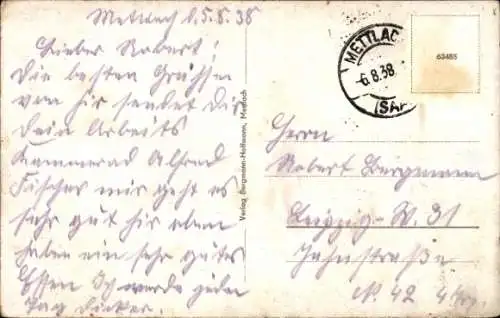 Mettlach d. 5.8.38
Lieber Robert!
Die besten Grüsse
von hir sendet dir
dein Arbeits
Kammerad Alfred
Fischer mir geht es
sehr gut hir oben
haben ein sehr gutes
Essen Ich werde jeden
Tag dicker.
Verlag Bergmann-Hoffmann, Mettlach
METTLAC
6.8.38
(SAA
63485
Herrn
Robert Bergmann
Leipzig-W. 31
Jahnstraße
No. 42